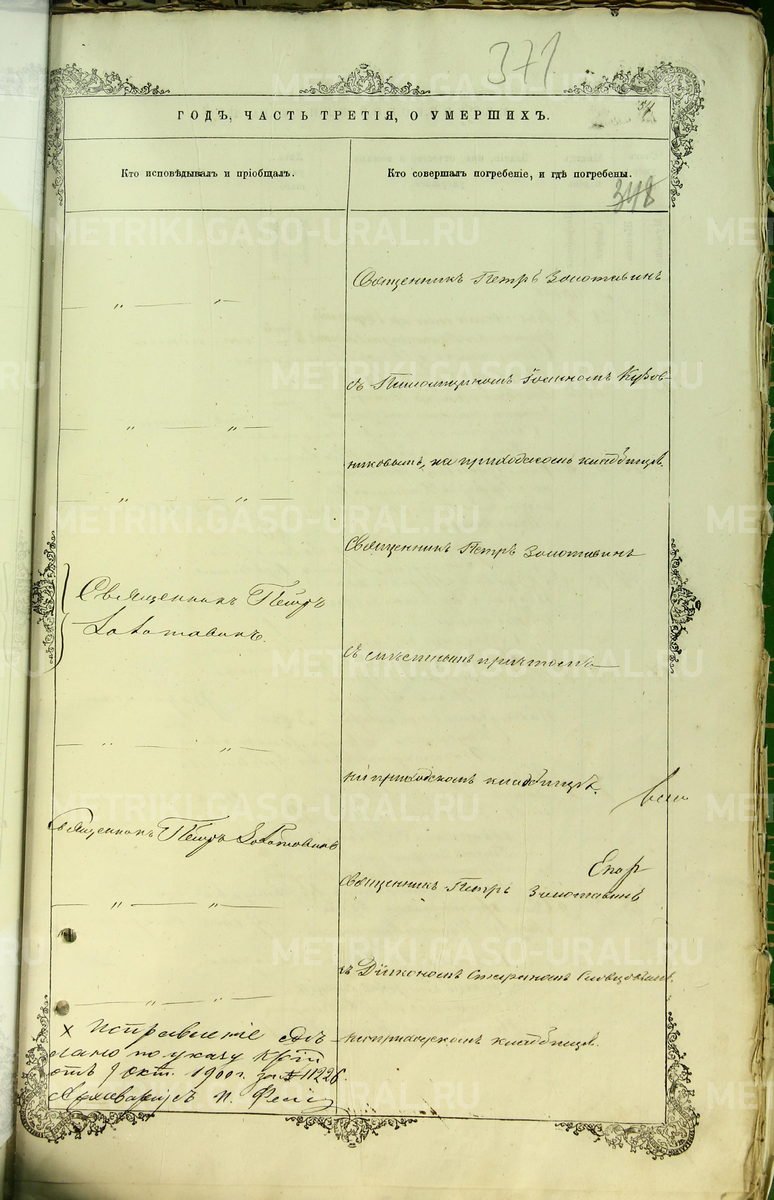 371
ГОДЪ, ЧАСТЬ ТРЕТІЯ, О УМЕРШИХЪ.
Кто исповѣдывалъ и пріобщалъ.
Кто совершалъ погребеніе, и гдѣ погребены.
348
Священникъ Петръ Золотавинъ
съ Псаломщикомъ Іоанномъ Кузов-
никовымъ, на приходскомъ кладбищѣ.
Священникъ Петръ Золотавинъ
Священникъ Петръ
Золотавинъ.
съ мѣстнымъ причтомъ
на приходскомъ кладбищѣ.
Священникъ Петръ Золотавинъ
Священникъ Петръ Золотавинъ
съ Діакономъ
на приходскомъ кладбищѣ.
× Исправленіе сдѣ
лано по указу
отъ 9 окт. 1900 г. за № 11226.
Архиваріусъ П.
METRIKI.GASO-URAL.RU